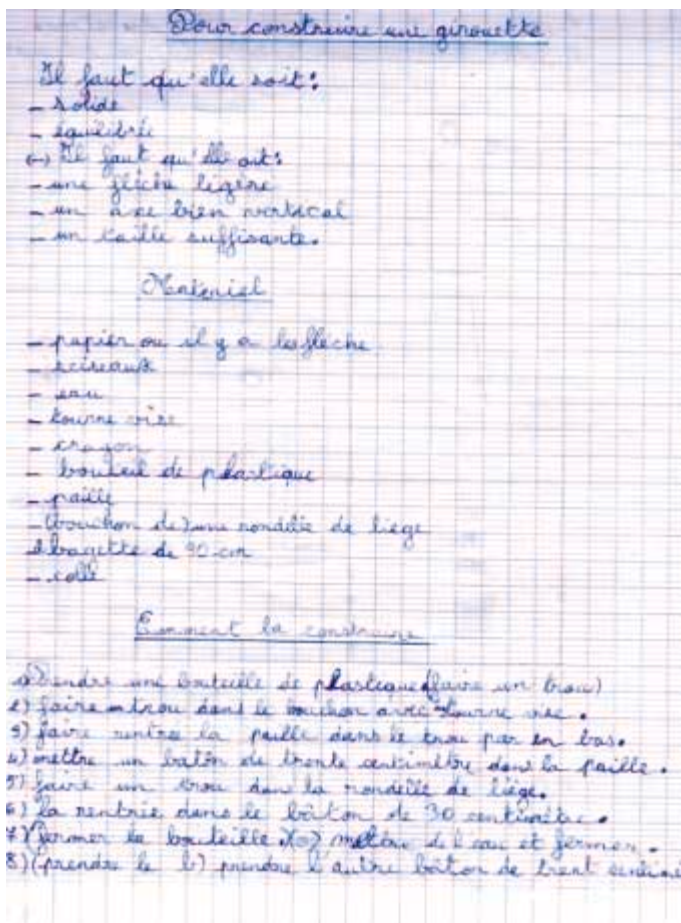 Pour construire une girouette
Il faut qu'elle soit :
- solide
- équilibrée
(-) Il faut qu'elle ait :
- une flèche ligère
- un axe bien vertical
- un taille suffisante.
Materiel
- papier ou il y a la flèche
- ciseaux
- eau
- tourne vise
- crayon
- bouteil de plastique
- paille
- (bouchon de) une rondelle de liege
bagette de 30 cm
- colle
Comment la construire
1) Prendre une bouteille de plastique (faire un trou)
2) faire un trou dans le bouchon avec tourne vise.
3) faire rentrer la paille dans le trou par en bas.
4) mettre un batôn de trente centimètre dans la paille.
5) faire un trou dans la rondelle de liège.
6) la rentrée dans le bâton de 30 centimètre.
7) fermer la bouteille mettre de l'eau et fermer.
8) (prendre le b) prendre l'autre bâton de trent